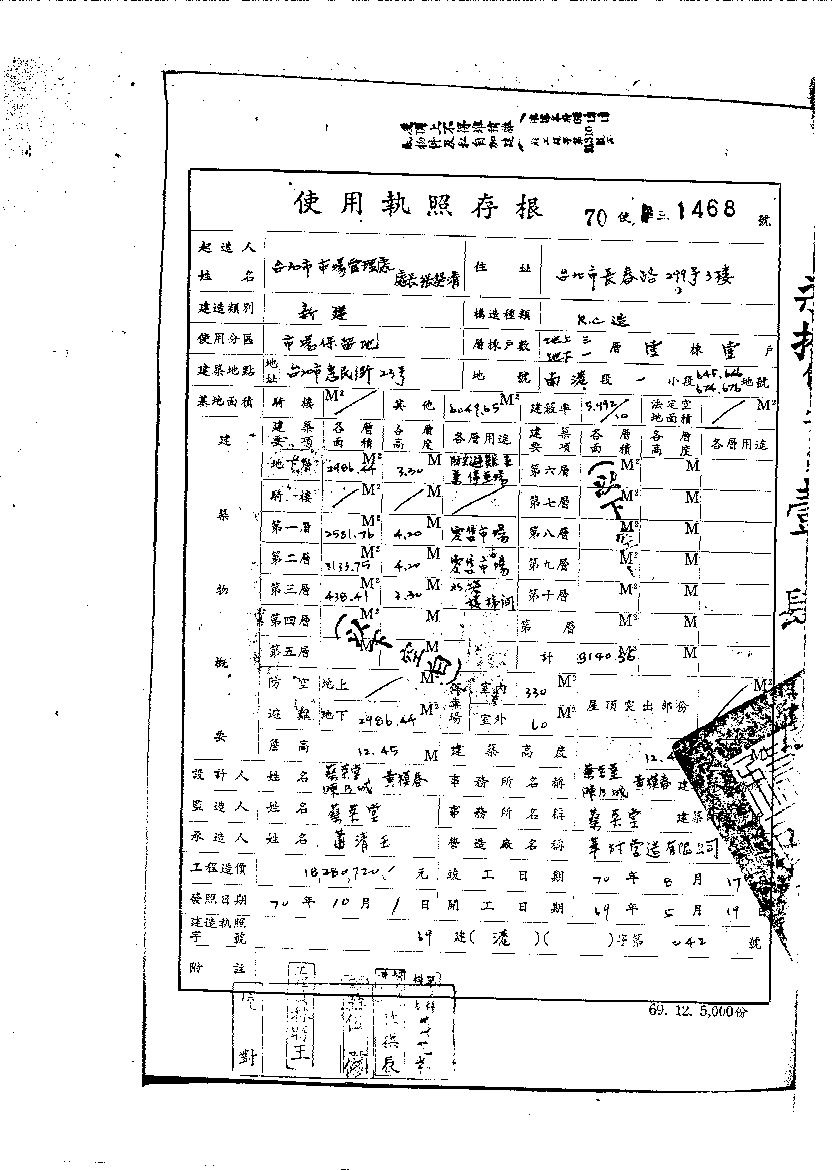 使用執照存根 70 使 三 1468 號
起造人姓名 台北市市場管理處 處長 住址 台北市長春路299号3樓
建造類別 新建 構造種類 R.C造
使用分區 市場保留地 層棟戶數 地上三 地下一 層 壹 棟 壹 戶
建築地點 地址 台北市惠民街23号 地號 南港 段 一 小段 645.646 674.676 地號
基地面積 騎樓 M² 其他 6049.65 M² 建蔽率 5.992/10 法定空地面積 M²
建築物概要
建築要項 各層面積 各層高度 各層用途 建築要項 各層面積 各層高度 各層用途
地下層 2986.44 M² 3.30 M 防空避難室兼停車場 第六層 M² M
騎樓 M² M 第七層 M² M
第一層 2581.76 M² 4.20 M 零售市場 第八層 M² M
第二層 3133.75 M² 4.20 M 零售市場 第九層 M² M
第三層 438.41 M² 3.30 M 樓梯間 第十層 M² M
第四層 M² M 第 層 M² M
第五層 M² M 計 9140.36 M² M
(以下空白)
(以下空
防空避難 地上 M² 室內 330 M² 屋頂突出部份 M²
地下 2986.44 M² 室外 60 M²
簷高 12.45 M 建築高度 12.4
設計人 姓名 蔡榮堂 陳乃城 黃模春 事務所名稱 蔡榮堂 陳乃城 黃模春 建
監造人 姓名 蔡榮堂 事務所名稱 蔡榮堂 建築
承造人 姓名 蕭清王 營造廠名稱 營造有限公司
工程造價 18,280,720 元 竣工日期 70 年 8 月 17
發照日期 70 年 10 月 1 日 開工日期 69 年 5 月 19 日
建造執照字號 69 建(港)( )字第 042 號
附註
69. 12. 5,000份
對